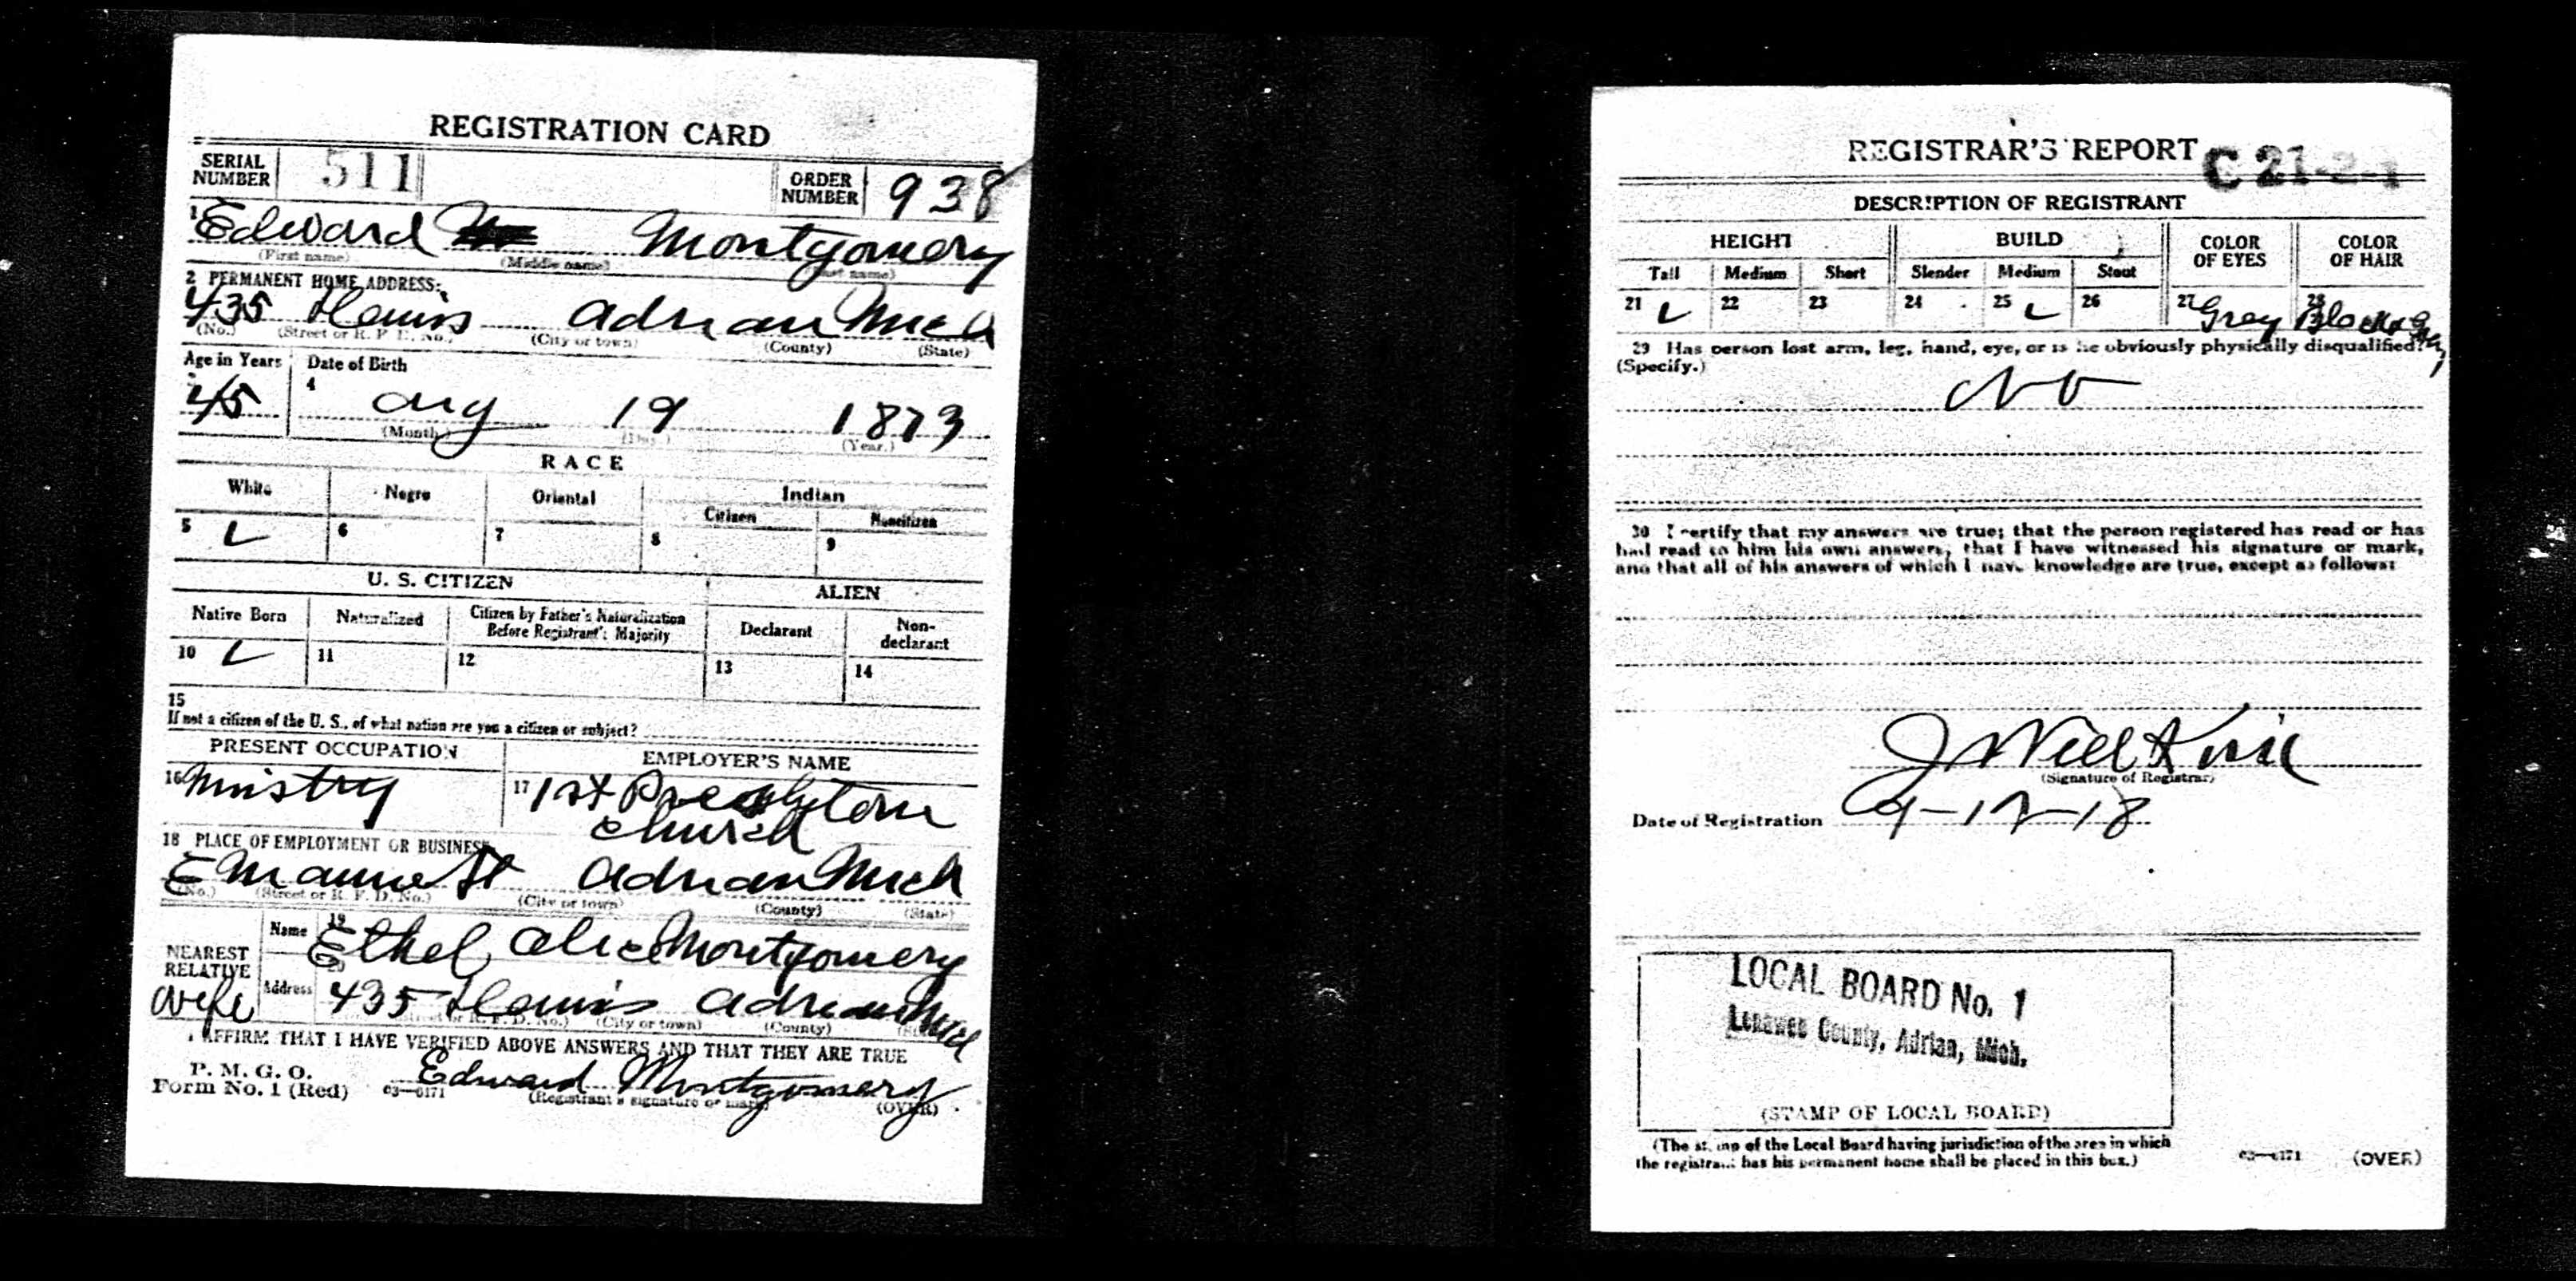 REGISTRATION CARD
SERIAL NUMBER 511 ORDER NUMBER 938
1 Edward Montgomery
(First name) (Middle name) (Last name)
2 PERMANENT HOME ADDRESS:
435 Dennis Adrian Mich
(No.) (Street or R. F. D. No.) (City or town) (County) (State)
Age in Years Date of Birth
45 4 Aug 19 1873
(Month) (Day.) (Year.)
RACE
White Negro Oriental Indian
Citizen Noncitizen
5 6 7 8 9
U. S. CITIZEN ALIEN
Native Born Naturalized Citizen by Father's Naturalization Before Registrant's Majority Declarant Non-declarant
10 11 12 13 14
15
If not a citizen of the U. S., of what nation are you a citizen or subject?
PRESENT OCCUPATION EMPLOYER'S NAME
16 Ministry 17 1st Presbyterian
Church
18 PLACE OF EMPLOYMENT OR BUSINESS
E Maumee St Adrian Mich
(No.) (Street or R. F. D. No.) (City or town) (County) (State)
NEAREST RELATIVE Name 19 Ethel Alice Montgomery
Wife Address 20 435 Dennis Adrian Mich
(Street or R. F. D. No.) (City or town) (County)
I AFFIRM THAT I HAVE VERIFIED ABOVE ANSWERS AND THAT THEY ARE TRUE
P. M. G. O.
Form No. 1 (Red) 03—6171 Edward Montgomery
(Registrant's signature or mark) (OVER)
REGISTRAR'S REPORT C 21-2-1
DESCRIPTION OF REGISTRANT
HEIGHT BUILD COLOR OF EYES COLOR OF HAIR
Tall Medium Short Slender Medium Stout
21 22 23 24 25 26 27 Grey 28 Black & Grey
29 Has person lost arm, leg, hand, eye, or is he obviously physically disqualified?
(Specify.)
No
30 I certify that my answers are true; that the person registered has read or has
had read to him his own answers; that I have witnessed his signature or mark,
and that all of his answers of which I have knowledge are true, except as follows:
J Will Kirk
(Signature of Registrar)
Date of Registration 9-12-18
LOCAL BOARD No. 1
Lenawee County, Adrian, Mich.
(STAMP OF LOCAL BOARD)
(The stamp of the Local Board having jurisdiction of the area in which
the registrant has his permanent home shall be placed in this box.)
03—6171 (OVER)